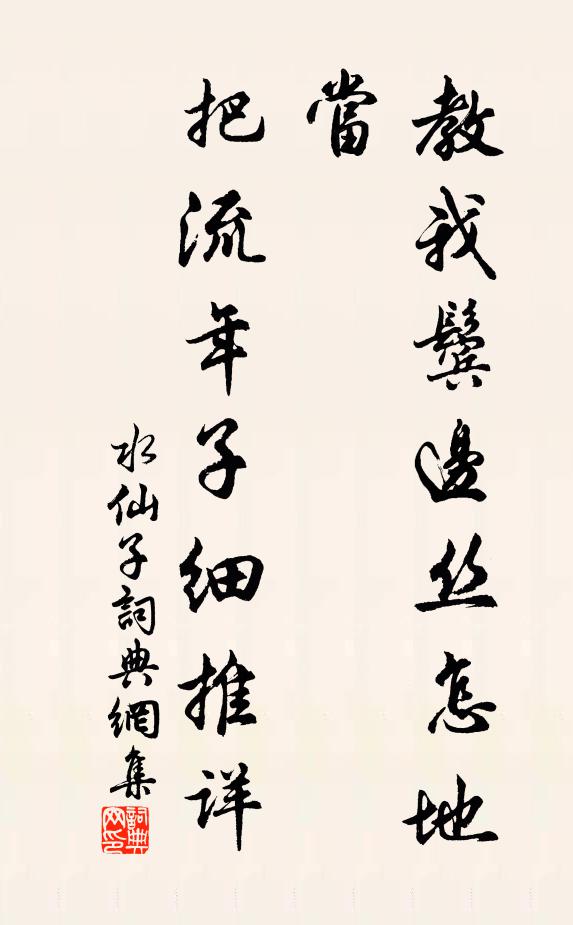 教我鬓邊丝怎地
當
把流年子细推详
水仙子詞典網集
詞典网印